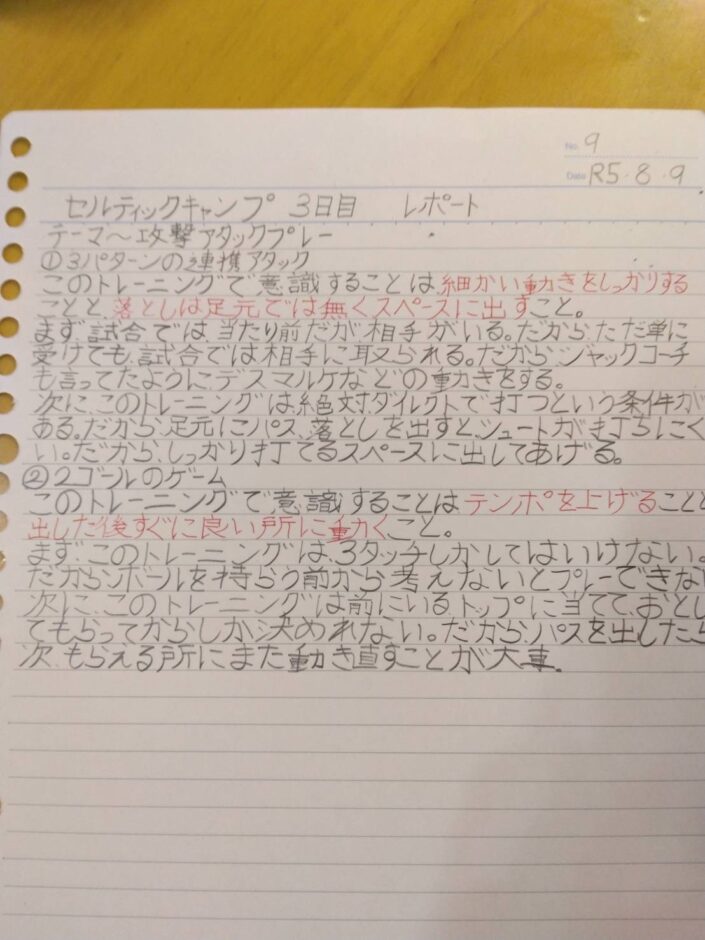 No. 9
Date R5・8・9
セルティックキャンプ 3日目 レポート
テーマ〜攻撃アタックプレー
①3パターンの連携アタック
このトレーニングで意識することは細かい動きをしっかりする
ことと、落としは足元では無くスペースに出すこと。
まず、試合では当たり前だが相手がいる。だから、ただ単に
受けても、試合では相手に取られる。だから、ジャックコーチ
も言ってたように、デスマルケなどの動きをする。
次に、このトレーニングは絶対、ダイレクトで打つという条件が
ある。だから、足元にパス、落としを出すと、シュートが打ちにく
い。だから、しっかり打てるスペースに出してあげる。
②2ゴールのゲーム
このトレーニングで意識することはテンポを上げることと
出した後すぐに良い所に動くこと。
まず、このトレーニングは、3タッチしかしてはいけない。
だから、ボールを持らう前から考えないとプレーできな
次に、このトレーニングは前にいるトップに当てて、おとし
てもらってからしか決めれない。だから、パスを出したら
次、もらえる所にまた動き直すことが大事.